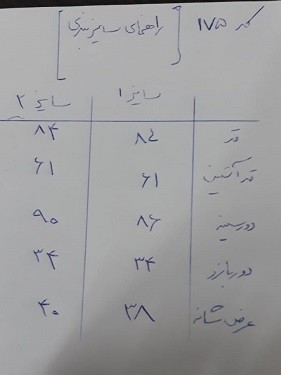 کد ۱۷۵ [راهنمای سایزبندی]
سایز ۱ سایز ۲
قد ۸۲ ۸۴
قد آستین ۶۱ ۶۱
دور سینه ۸۶ ۹۰
دور بازو ۳۴ ۳۴
عرض شانه ۳۸ ۴۰